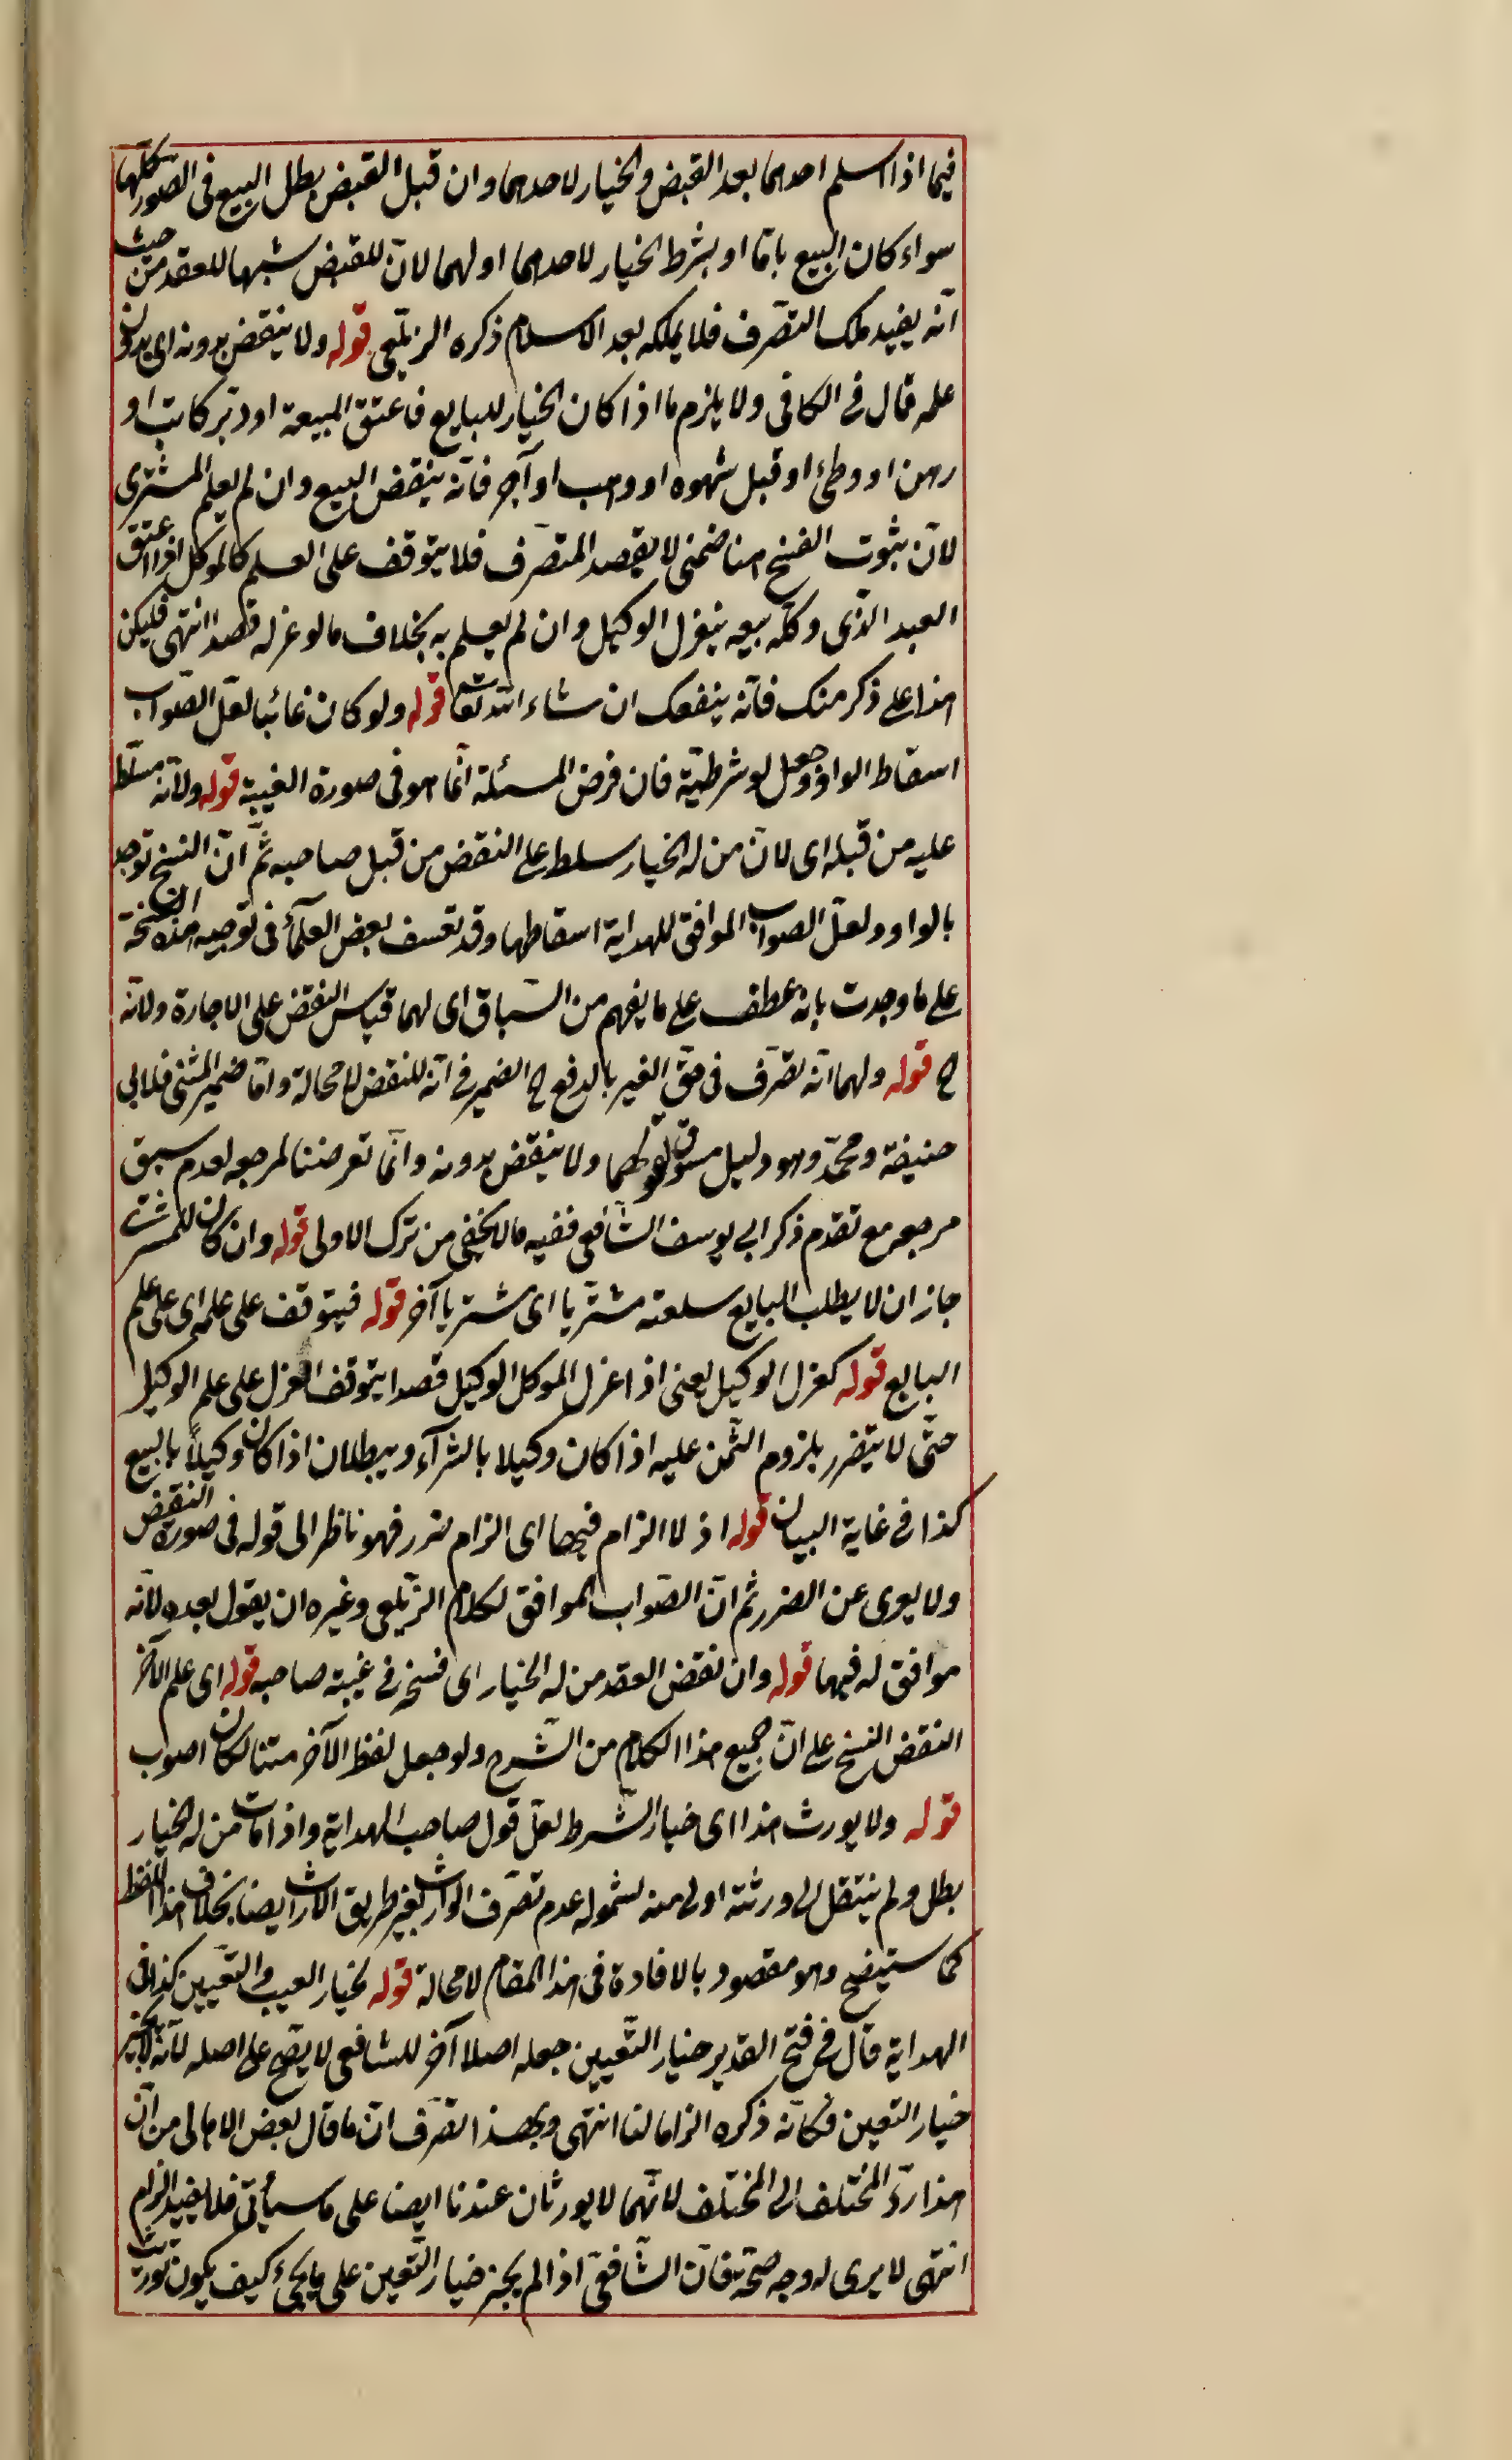 فيما اذا اسلم احدهما بعد القبض والخيار لاحدهما وان قبل القبض بطل البيع فى الصّور كلّها
سواء كان البيع باتّا او بشرط الخيار لاحدهما او لهما لانّ للقبض شبها للعقد من حيث
انّه يفيد ملك التصّرف فلا يملكه بعد الاسلام ذكره الزيلّعى قوله ولا ينقض بدونه اى بدون
علمه قال فى الكافى ولا يلزم ما اذا كان الخيار للبايع فاعتق المبيعة او دبّر كاتب او
رهن او وطئ او قبل شهوه او وهب او آجر فانّه ينقض البيع وان لم يعلم المشترى
لانّ ثبوت الفسخ هنا ضمنى لا يقصد المتصّرف فلا يتوقف على العلم كالموكل اذا اعتق
العبد الذّى وكلّه ببيعه ينعزل الوكيل وان لم يعلم به بخلاف ما لو عزله قصدا انتهى فليكن
هذا على ذكر منك فانّه ينفعك ان شاء اللّه تعا قوله ولو كان غائبا لعلّ الصّواب
اسقاط الواو وجعل لو شرطيّة فان فرض المسئلة انّما هو فى صورة الغيبة قوله ولانّه مسلّط
عليه من قبله اى لانّ من له الخيار سلط على النقض من قبل صاحبه ثمّ انّ النسخ توجد
بالواو ولعلّ الصواب الموافق للهداية اسقاطها وقد تعسف بعض العلمآء فى توجيه هذه النسخة
على ما وجدت بانه عطف على ما يفهم من السّباق اى لهما قياس النقض على الاجازة ولانّه
ح قوله ولهما انّه تصّرف فى حقّ الغير بالدفع ح الضمير فى انّه للنقض لا محالة وامّا ضمير المثنى فلابى
حنيفة ومحمّد وهو دليل مسوق لقولهما ولا ينقض بدونه وانّما تعرضنا لمرجعه لعدم سبق
مرجعه مع تقدم ذكر ابى يوسف الشّافعى ففيه ما لا يخفى من ترك الاولى قوله وان كان للمشترى
جاز ان لا يطلب البايع سلعته مشتريا اى مشتريا آخر قوله فيتوقف على علمه اى على علم
البايع قوله كعزل الوكيل يعنى اذا عزل الموكل الوكيل قصدا يتوقف العزل على علم الوكيل
حتّى لا يتضرر بلزوم الثّمن عليه اذا كان وكيلا بالشرآء وببطلان اذا كان وكيلاً بالبيع
كذا فى غاية البيان قوله اذ لا الزام فيها اى الزام ضرر فهو ناظر الى قوله فى صورة النقض
ولا يعرى عن الضرر ثم انّ الصّواب الموافق لكلام الزّيلعى وغيره ان يقول بعده لانّه
موافق له فيهما قوله وان نقض العقد من له الخيار اى فسخه فى غيبة صاحبه قوله اى علم الآخر
النقض النسخ على انّ جميع هذا الكلام من الشّرح ولو جعل لفظ الآخر متنا لكان اصوب
قوله ولا يورث هذا اى خيار الشّرط لعلّ قول صاحب الهداية واذا مات من له الخيار
بطل ولم ينتقل الى ورثته اولى منه لشموله عدم تصّرف الوارث بغير طريق الارث ايضا بخلاف هذا اللفظ
كما ستيضح وهو مقصود بالافادة فى هذا المقام لا محالة قوله كخيار العيب والتّعيين كذا فى
الهداية قال فى فتح القدير خيار التّعيين جعله اصلا آخر للشافعى لا يصّح على اصله لانّه لا يجيز
خيار التعيين فكانّه ذكره الزاما لنا انتهى وبهذا تعرف انّ ما قال بعض الاهالى من انّ
هذا ردّ المختلف الى المختلف لانّهما لا يورثان عندنا ايضا على ما سيأتى فلا يفيد الزام
انتهى لا يرى له وجه صحّة فانّ الشّافعىّ اذا لم يجز خيار التّعيين على ما يجئ كيف يكون توريث